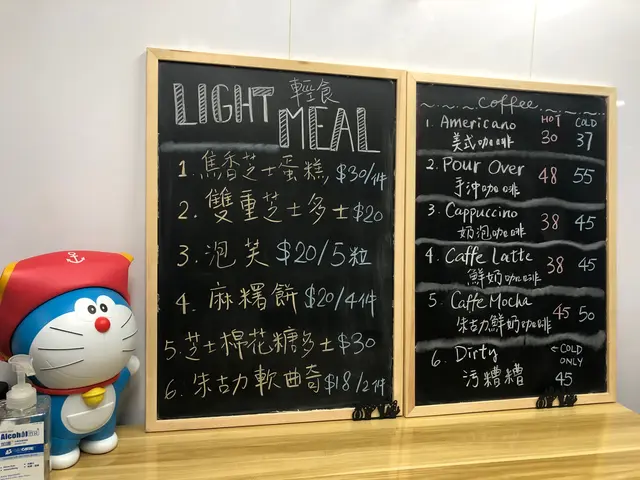 LIGHT 輕食
MEAL
1. 焦香芝士蛋糕, $30/件
2. 雙重芝士多士 $20
3. 泡芙 $20/5粒
4. 麻糬餅 $20/4件
5. 芝士棉花糖多士 $30
6. 朱古力軟曲奇 $18/2件
Coffee
HOT COLD
1. Americano 30 37
美式咖啡
2. Pour Over 48 55
手沖咖啡
3. Cappuccino 38 45
奶泡咖啡
4. Caffe Latte 38 45
鮮奶咖啡
5. Caffe Mocha 45 50
朱古力鮮奶咖啡
6. Dirty ←COLD
ONLY
污糟糟 45
Alcohol